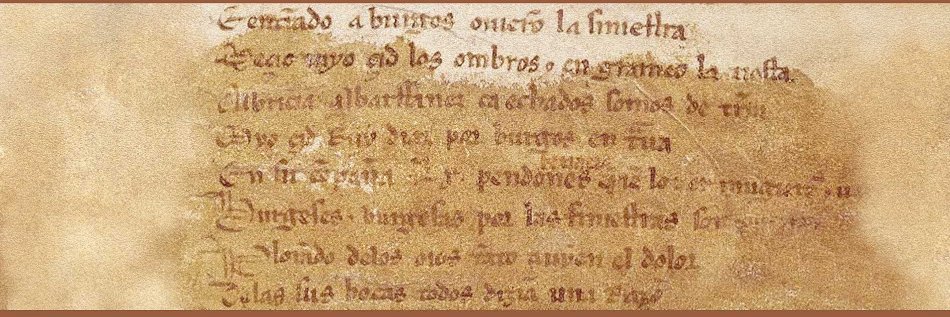 E entrãdo a burgos ouierõ la siniestra
Meçio myo çid los ombros & en grameo la tiesta
Albricia albarffanez ca echados somos de trra
Myo çid Ruy diaz por burgos en traua
En su cõpaña .Lx. pendones
Burgeses & burgesas por las finiestras son
Plorãdo delos oios tãto auyen el dolor
Delas sus bocas todos dizia una razõ